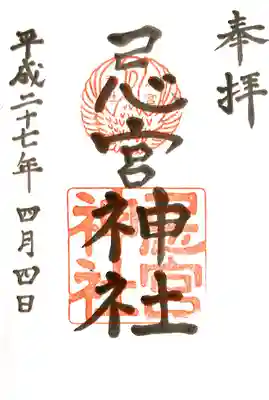 奉拝
忌宮神社
忌宮
神社
平成二十七年 四月四日